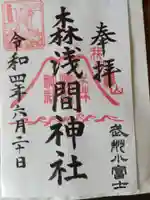 奉拝
武州小富士
森浅間神社
令和四年六月二十日